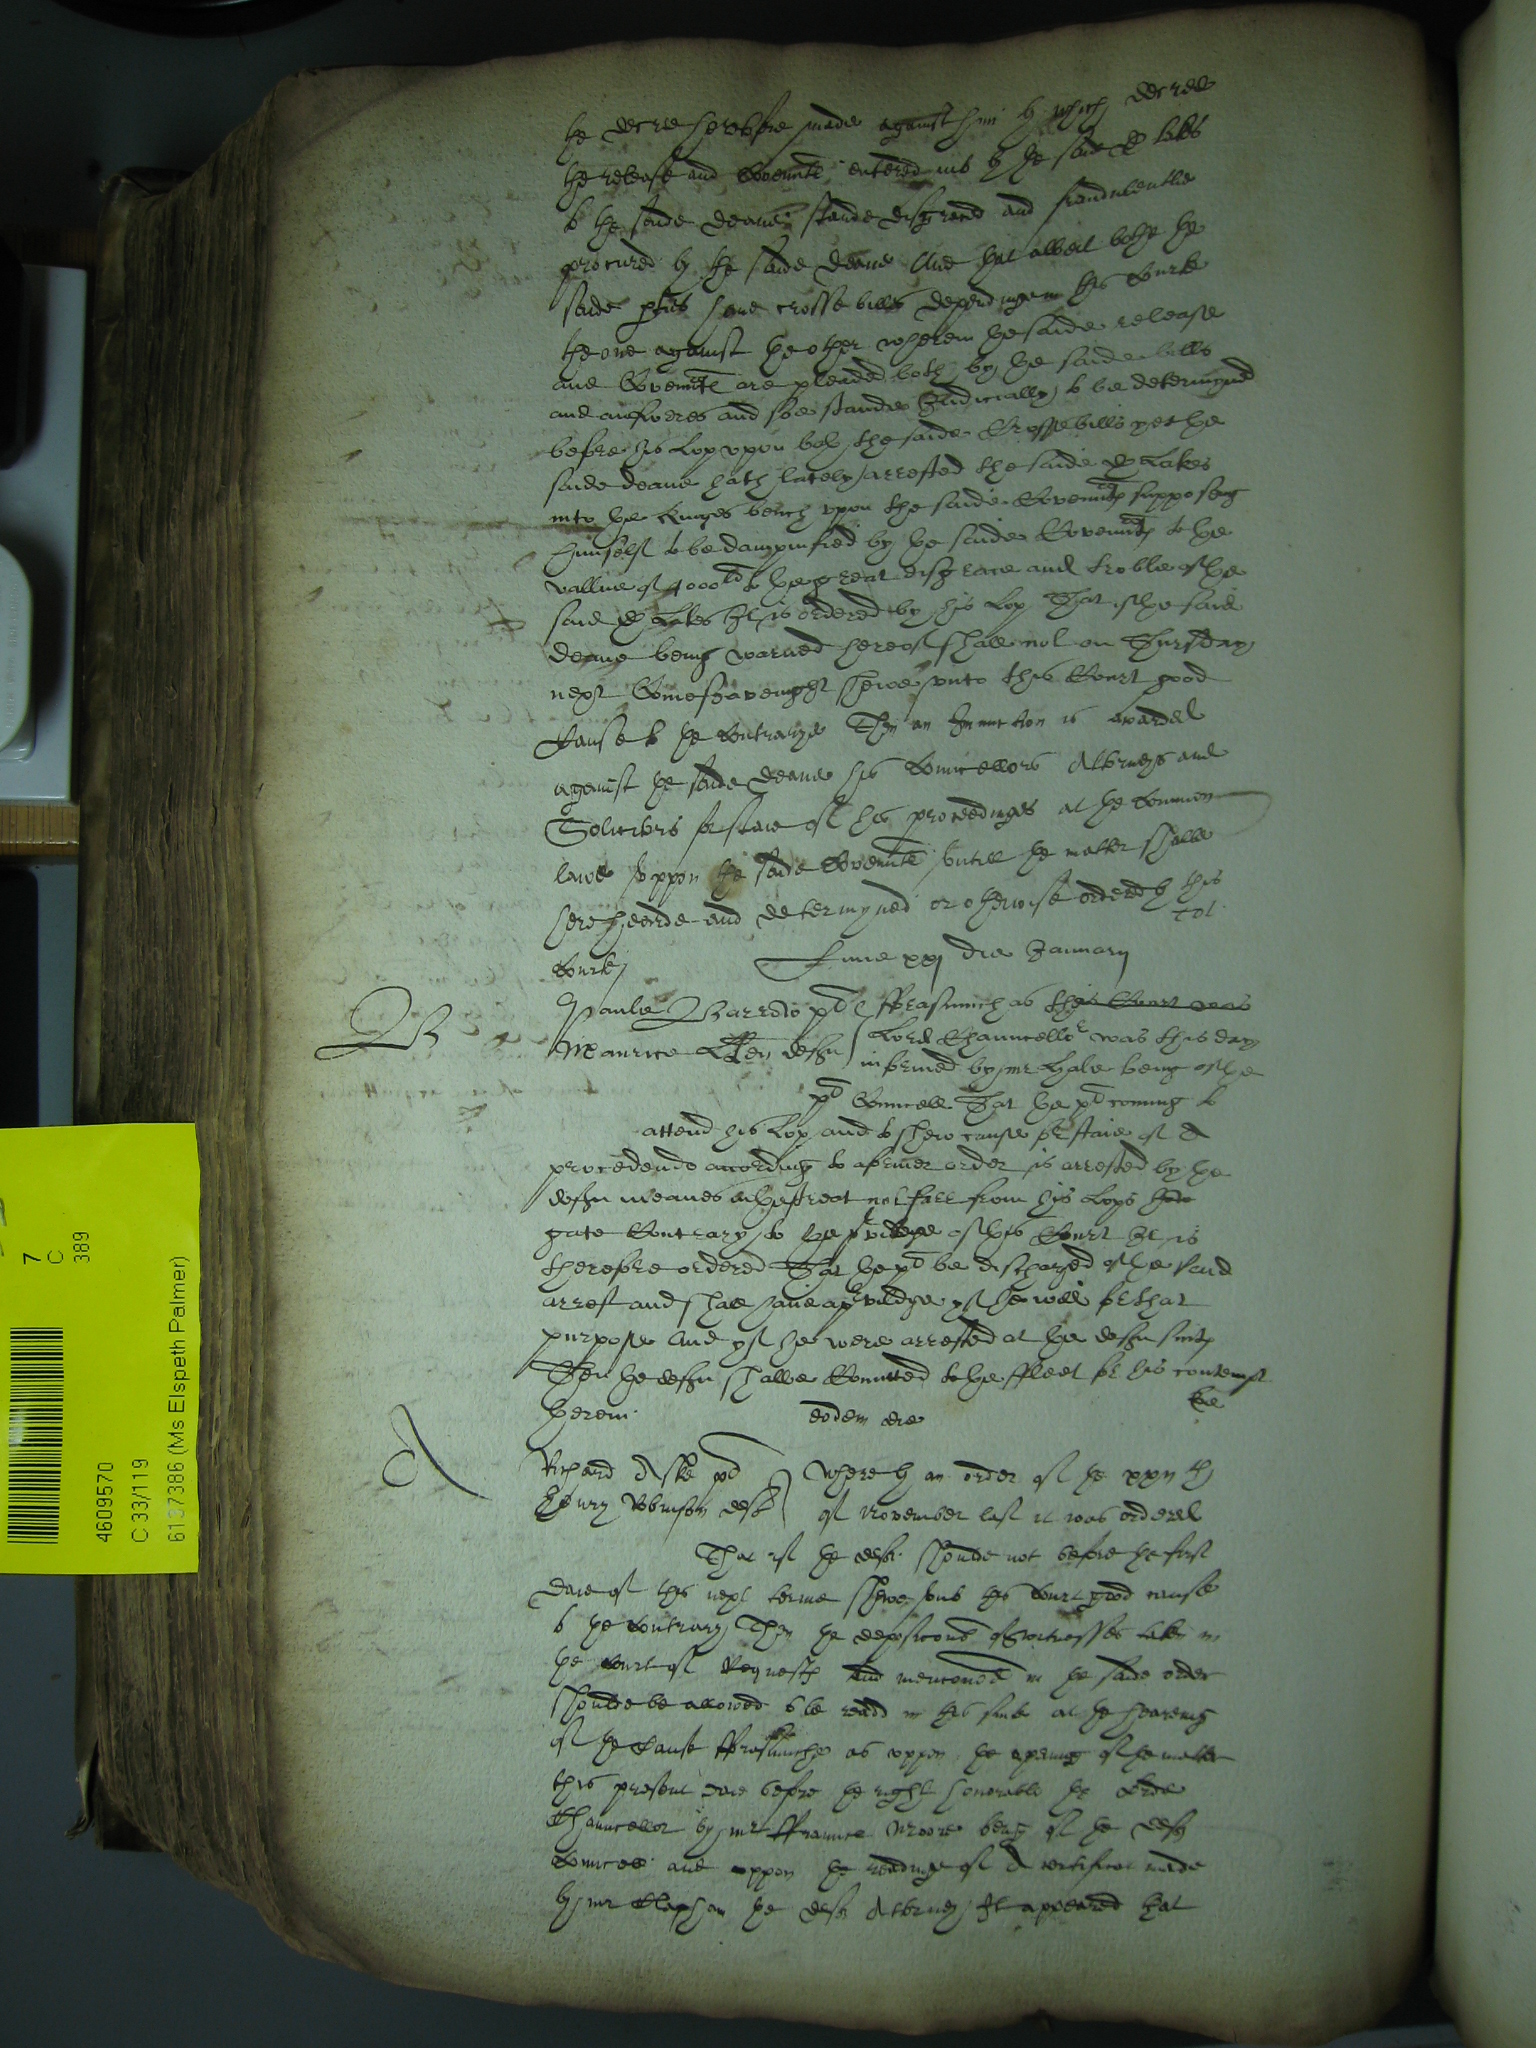 the decree heretofore made against him by which decree
the release and Covennte entred into by the saide
to the saide Deane stande disgraced and fraudulentlie
procured by the saide Deane And that albeit bothe the
saide pties have crosse bills depending in this Courte
the one against the other wherein the saide release
and Covennte are pleaded both by the saide bills
and answeres and soe stande Judicially to be determyned
before his Lop upon both the saide Crosse bills yet the
saide deane hath lately arrested the saide
into the kinges bench upon the saide Covennte supposing
himselfe to be dampnified by the saide Covennte to the
vallue of 4000li to the great disgrace and troble of the
said It is ordered by his Lop That if the said
deane being warned hereof shall not on Thursday
next Come sevenight shewe unto this Court good
Cause to the Contrarye Then an Injunction is awarded
against the saide Deane his Councellors Attorneys and
Solicitors for staie of his proceedinges at the Common
lawe uppon the saide Covennte untill the matter shalbe
here hearde and determyned or otherwise ordered by this
Courte
Lune xxj die Januarij
Paule pl forasmuch as this Court was
Maurice defn Lord Chauncellor was this day
informed by mr Hale being of the
pl Councell That the pl coming to
attend his Lop and to shew cause for staie of A
procedendo according to a former order is arrested by the
defn meanes in the streat not farr from his Lops
gate Contrary to the priviledge of this Court It is
therefore ordered That the pl be discharged of the said
arrest and shall have a priviledge yf he will for that
purpose And yf he were arrested at the defn suite
Then the defn shalbe Comitted to the ffleet for his contempt
therein eodem die
A
Richard pl Where by an order of the
Henry Robinson deft of November last it was ordered
That if the deft shoulde not before the first
daie of this next terme shewe unto this Court good cause
to the Contrary Then the deposicons of witnesses taken in
the Court of Requests and mencioned in the saide order
shoulde be allowed to be readd in this suite at the hearing
of the Cause fforasmuche as uppon the opening of the matter
this present daie before the right honorable the Lorde
Chauncellor by mr ffraunce Moore being of the deft
Councell and uppon the readinge of A certificat made
by mr Clapham the deft Attorney It appeared that
7
C
389
4609570
C 33/119
6137386 (Ms Elspeth Palmer)